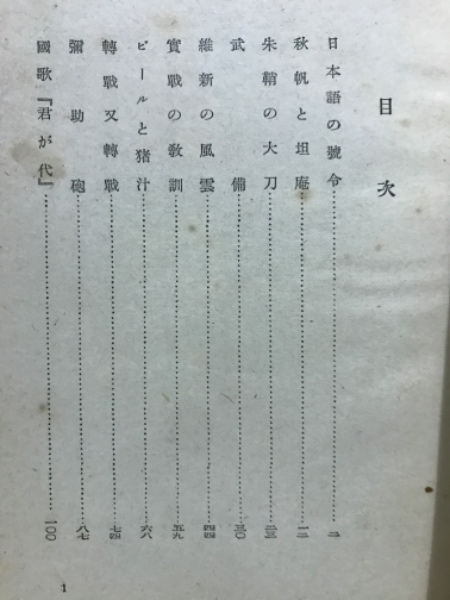 目次
日本語の號令……二
秋帆と坦庵……一二
朱鞘の大刀……二三
武備……三〇
維新の風雲……四四
實戰の教訓……五九
ビールと猪汁……六八
轉戰又轉戰……七四
彌助砲……八七
國歌『君が代』……一〇〇
1